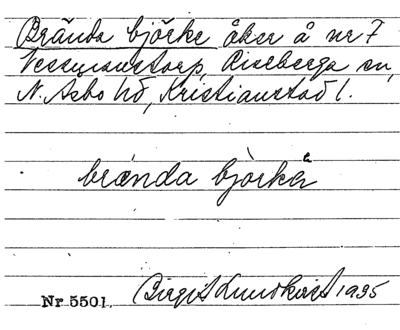 Brända björke åker å nr 7
Vessmanstorp, Riseberga sn,
N. Åsbo hd, Kristianstad l.
brända bjòrkå
Nr 5501. Birgit Lundkvist 1935